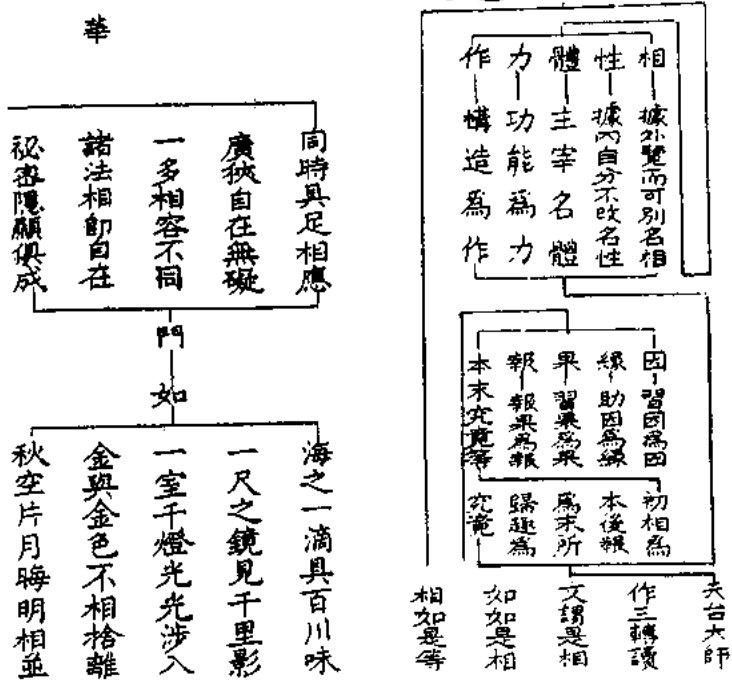 相 據外覽而可別名相
性 據內自分不改名性
體 主宰名體
力 功能爲力
作 構造爲作
因 習因爲因
緣 助因爲緣
果 習果爲果
報 報果爲報
本末究竟等
初相爲
本後報
爲末所
歸趣爲
究竟
天台大師
作三轉讀
文謂是相
如如是相
相如是等
華
同時具足相應
廣狹自在無礙
一多相容不同
諸法相即自在
祕密隱顯俱成
門
如
海之一滴具百川味
一尺之鏡見千里影
一室千燈光光涉入
金與金色不相捨離
秋空片月晦明相並